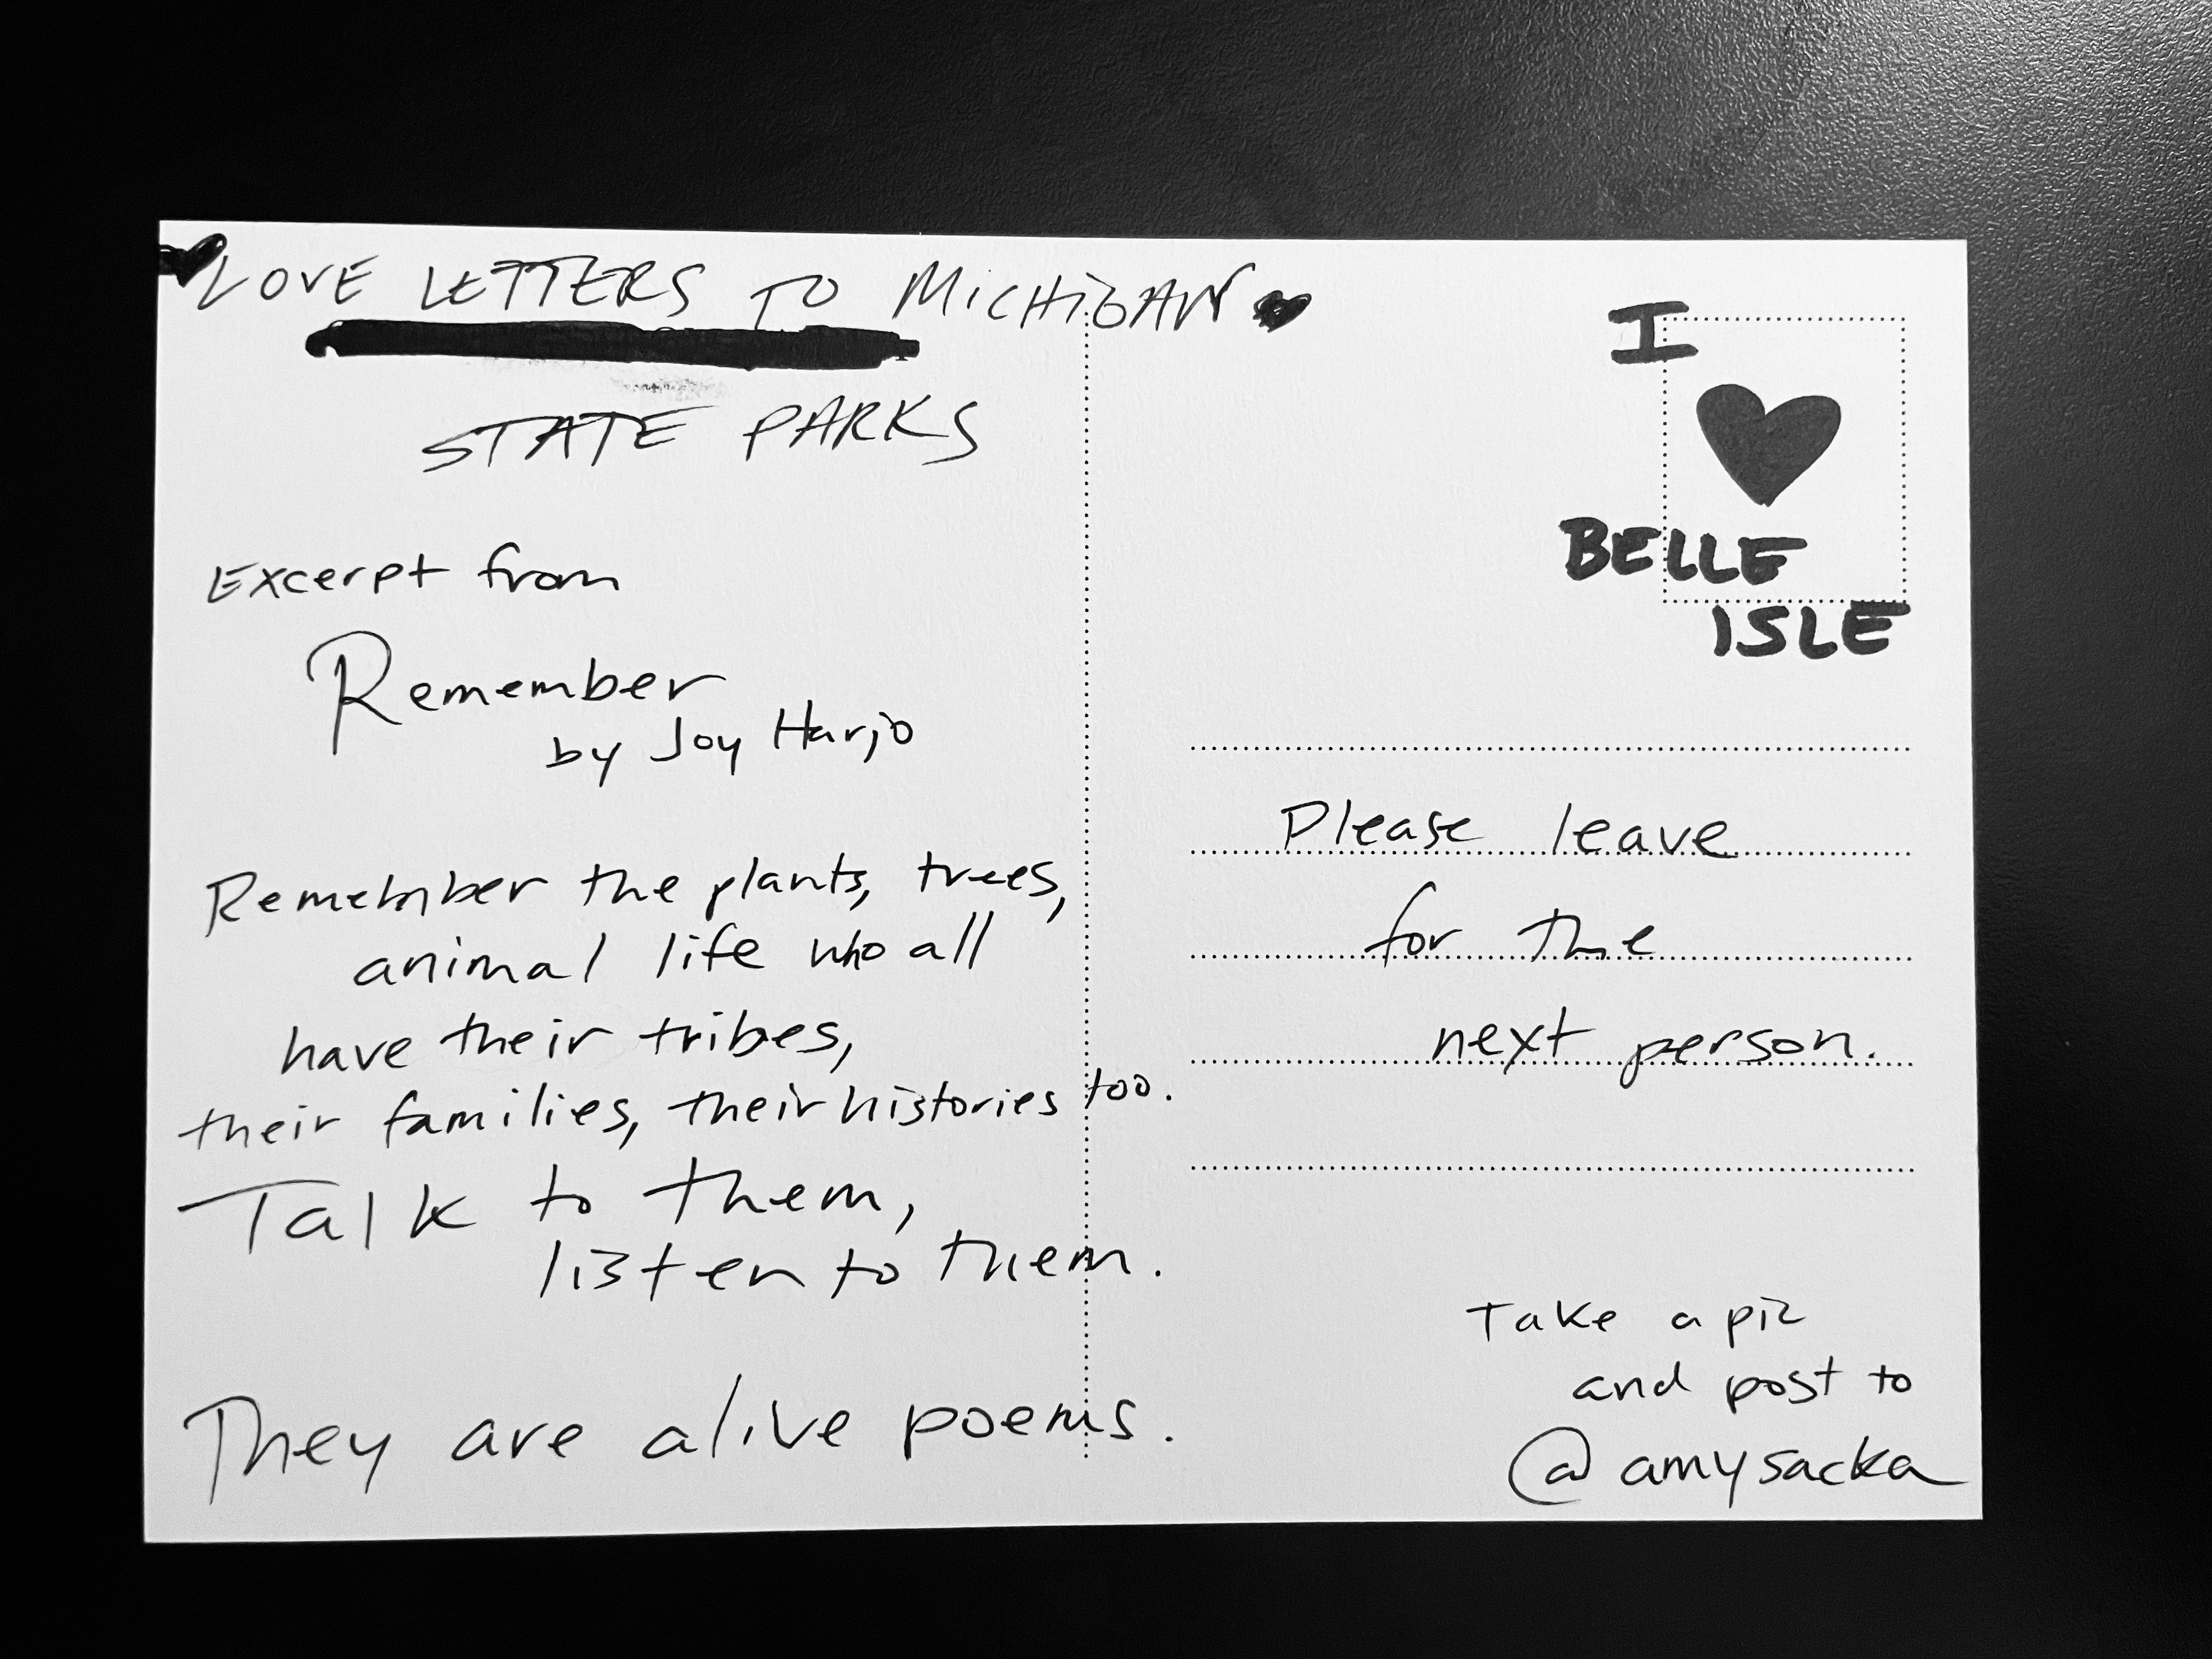 LOVE LETTERS TO MICHIGAN
STATE PARKS
Excerpt from
Remember
by Joy Harjo
Remember the plants, trees,
animal life who all
have their tribes,
their families, their histories too.
Talk to them,
listen to them.
They are alive poems.
I
BELLE
ISLE
Please leave
for the
next person.
Take a pic
and post to
@amysacka